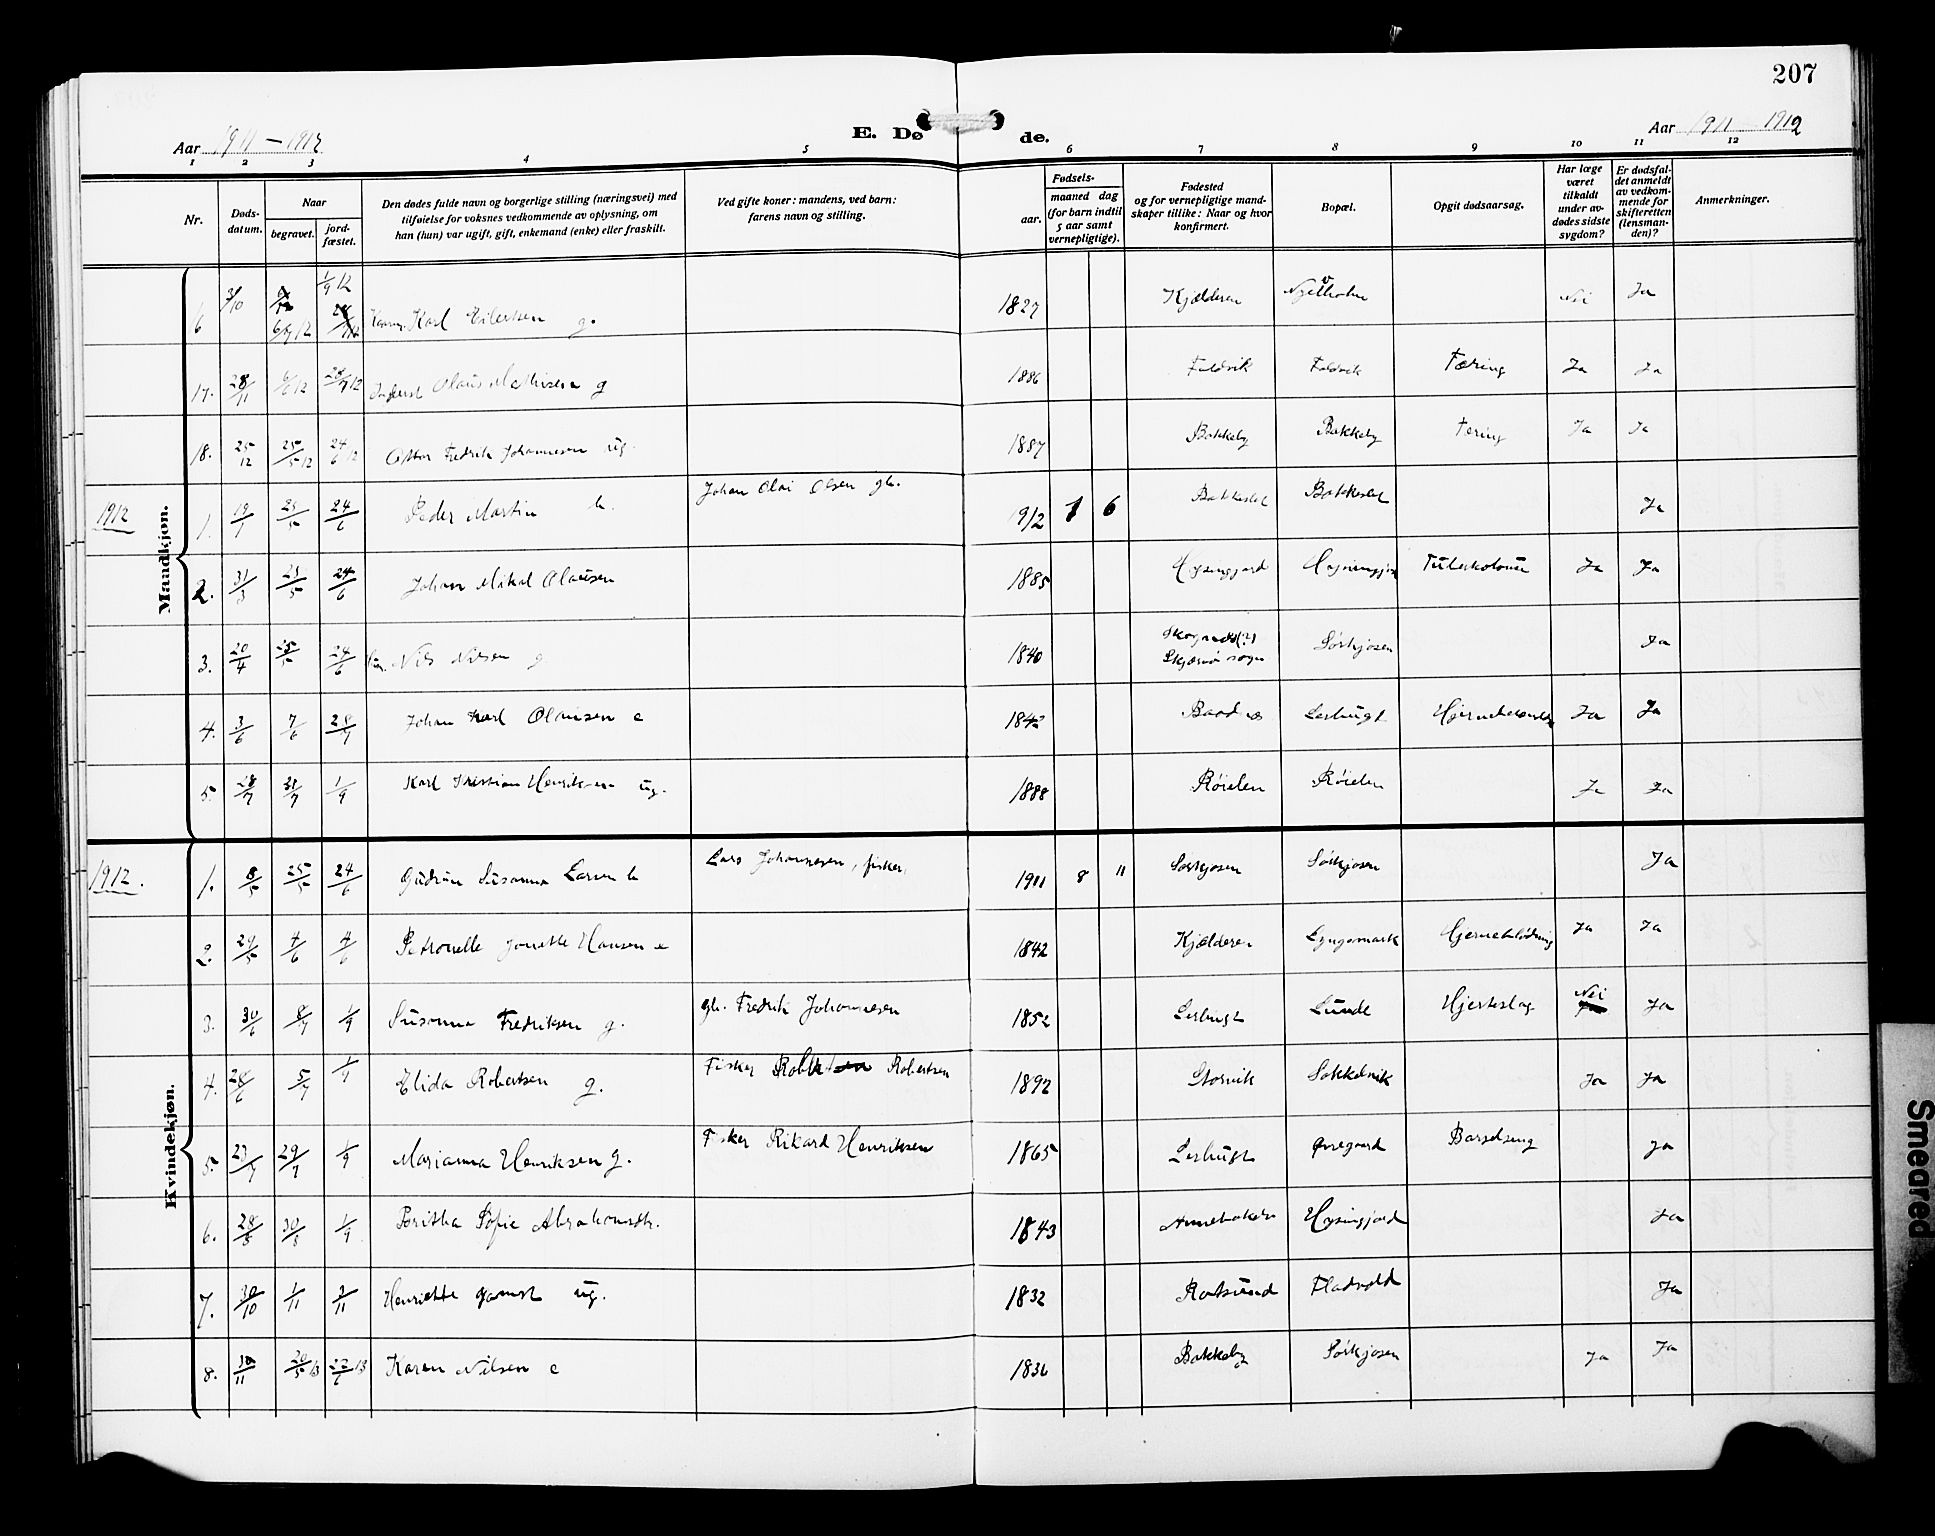 207
Aar 1911 – 1912
E. Dø de.
Aar 1911 – 1912
1 2 3 4 5 6 7 8 9 10 11 12
Nr.
Døds-
datum.
Naar
begravet.
jord-
fæstet.
Den dødes fulde navn og borgerlige stilling (næringsvei) med
tilføielse for voksnes vedkommende av oplysning, om
han (hun) var ugift, gift, enkemand (enke) eller fraskilt.
Ved gifte koner: mandens, ved barn:
farens navn og stilling.
Fødsels-
aar.
maaned dag
(for barn indtil
5 aar samt
vernepligtige).
Fødested
og for vernepligtige mand-
skaper tillike: Naar og hvor
konfirmert.
Bopæl.
Opgit dødsaarsag.
Har læge
været
tilkaldt
under av-
dødes sidste
sygdom?
Er dødsfal-
det anmeldt
av vedkom-
mende for
skifteretten
(lensman-
den)?
Anmerkninger.
Mandkjøn.
6 Karl Eilertsen g. 1827 Kjælderen Nei Ja
17. 28/11 Olaus Mathisen g 1886 Foldvik Foldvik Tæring Ja Ja
18. 25/12 25/5 12 24/6 12 Ottar Fredrik Johannesen ug. 1887 Bakkeby Bakkeby Tæring Ja Ja
1912
1. 19/7 25/5 24/6 Peder Martin b. Johan Olai Olsen gb. 1912 1 6 Bakkeslet Bakkeslet Ja
2. 31/3 25/5 24/6 Johan Mikal Olausen 1885 Tuberkolouse Ja Ja
3. 20/4 25/5 24/6 Nils Nilsen g 1840 Skjærvø sogn Sørkjosen Ja
4. 3/6 7/6 28/7 Johan Karl Olausen e 1842 Baadnes Lerbugt Ja Ja
5. 28/7 31/7 1/9 Karl Kristian Henriksen ug. 1888 Røielen Røielen Ja Ja
Kvindekjøn.
1912.
1. 8/5 25/5 24/6 Gudrun Susanna Larsen b Lars Johannesen, fisker. 1911 8 11 Sørkjosen Sørkjosen Ja
2. 29/5 4/6 4/6 Petronelle Jonette Hansen e 1842 Kjælderen Lyngsmark Hjerneblødning Ja Ja
3. 30/6 8/7 1/9 Susanna Fredriksen g. gb. Fredrik Johannesen 1852 Lerbugt Lunde Hjerteslag Nei Ja
4. 28/6 5/7 1/9 Elida Robertsen g. Fisker Robertsen 1892 Storvik Sokkelvik Ja Ja
5. 23/7 29/7 1/9 Marianna Henriksen g. Fisker Rikard Henriksen 1865 Lerbugt Øvregaard Barselseng Ja
6. 28/8 30/8 1/9 Britha Sofie Abrahamsdtr. 1843 Ja
7. 30/10 1/11 3/11 Henriette Gamst ug. 1832 Rotsund Fladvold Ja
8. 30/11 20/5 13 22/6 13 Karen Nilsen e 1836 Bakkeby Sørkjosen Ja Ja
Smeared